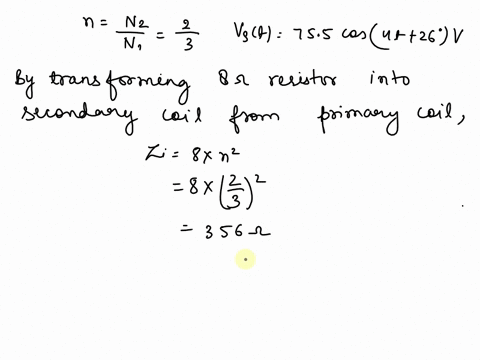 n = N2/N1 = 2/3 Vs(t) = 75.5 cos(4t+26°) V
By transforming 8Ω resistor into
secondary coil from primary coil,
Zi = 8 × n²
= 8 × (2/3)²
= 3 56 Ω